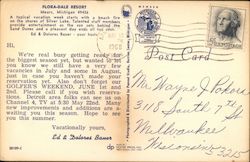 FLORA-DALE RESORT
Mears, Michigan 49436
A typical vacation week starts with a beach fire
on the shores of Silver Lake. Talented staff members
provide entertainment as the sun sets behind the
Sand Dunes and a pleasant day ends all too soon.
Ed & Dolores Bauer - your hosts
Hi,
We're real busy getting ready for
the biggest season yet, but wanted to let
you know we still have a very few
vacancies in July and some in August,
just in case you haven't made your
reservation yet. Also don't forget the
GOLFER'S WEEKEND, JUNE 1st and
2nd. Please call if you wish reservations.
Detroit area folks can see us on
Channel 4, TV at 5:30 May 22nd. Many
new improvements and additions are
waiting you this season. Hope to see
you this summer.
Vacationally yours,
Ed & Dolores Bauer
Post Card
Mr. Wayne J.
3118 South 
Milwaukee
Wisconsin 53215